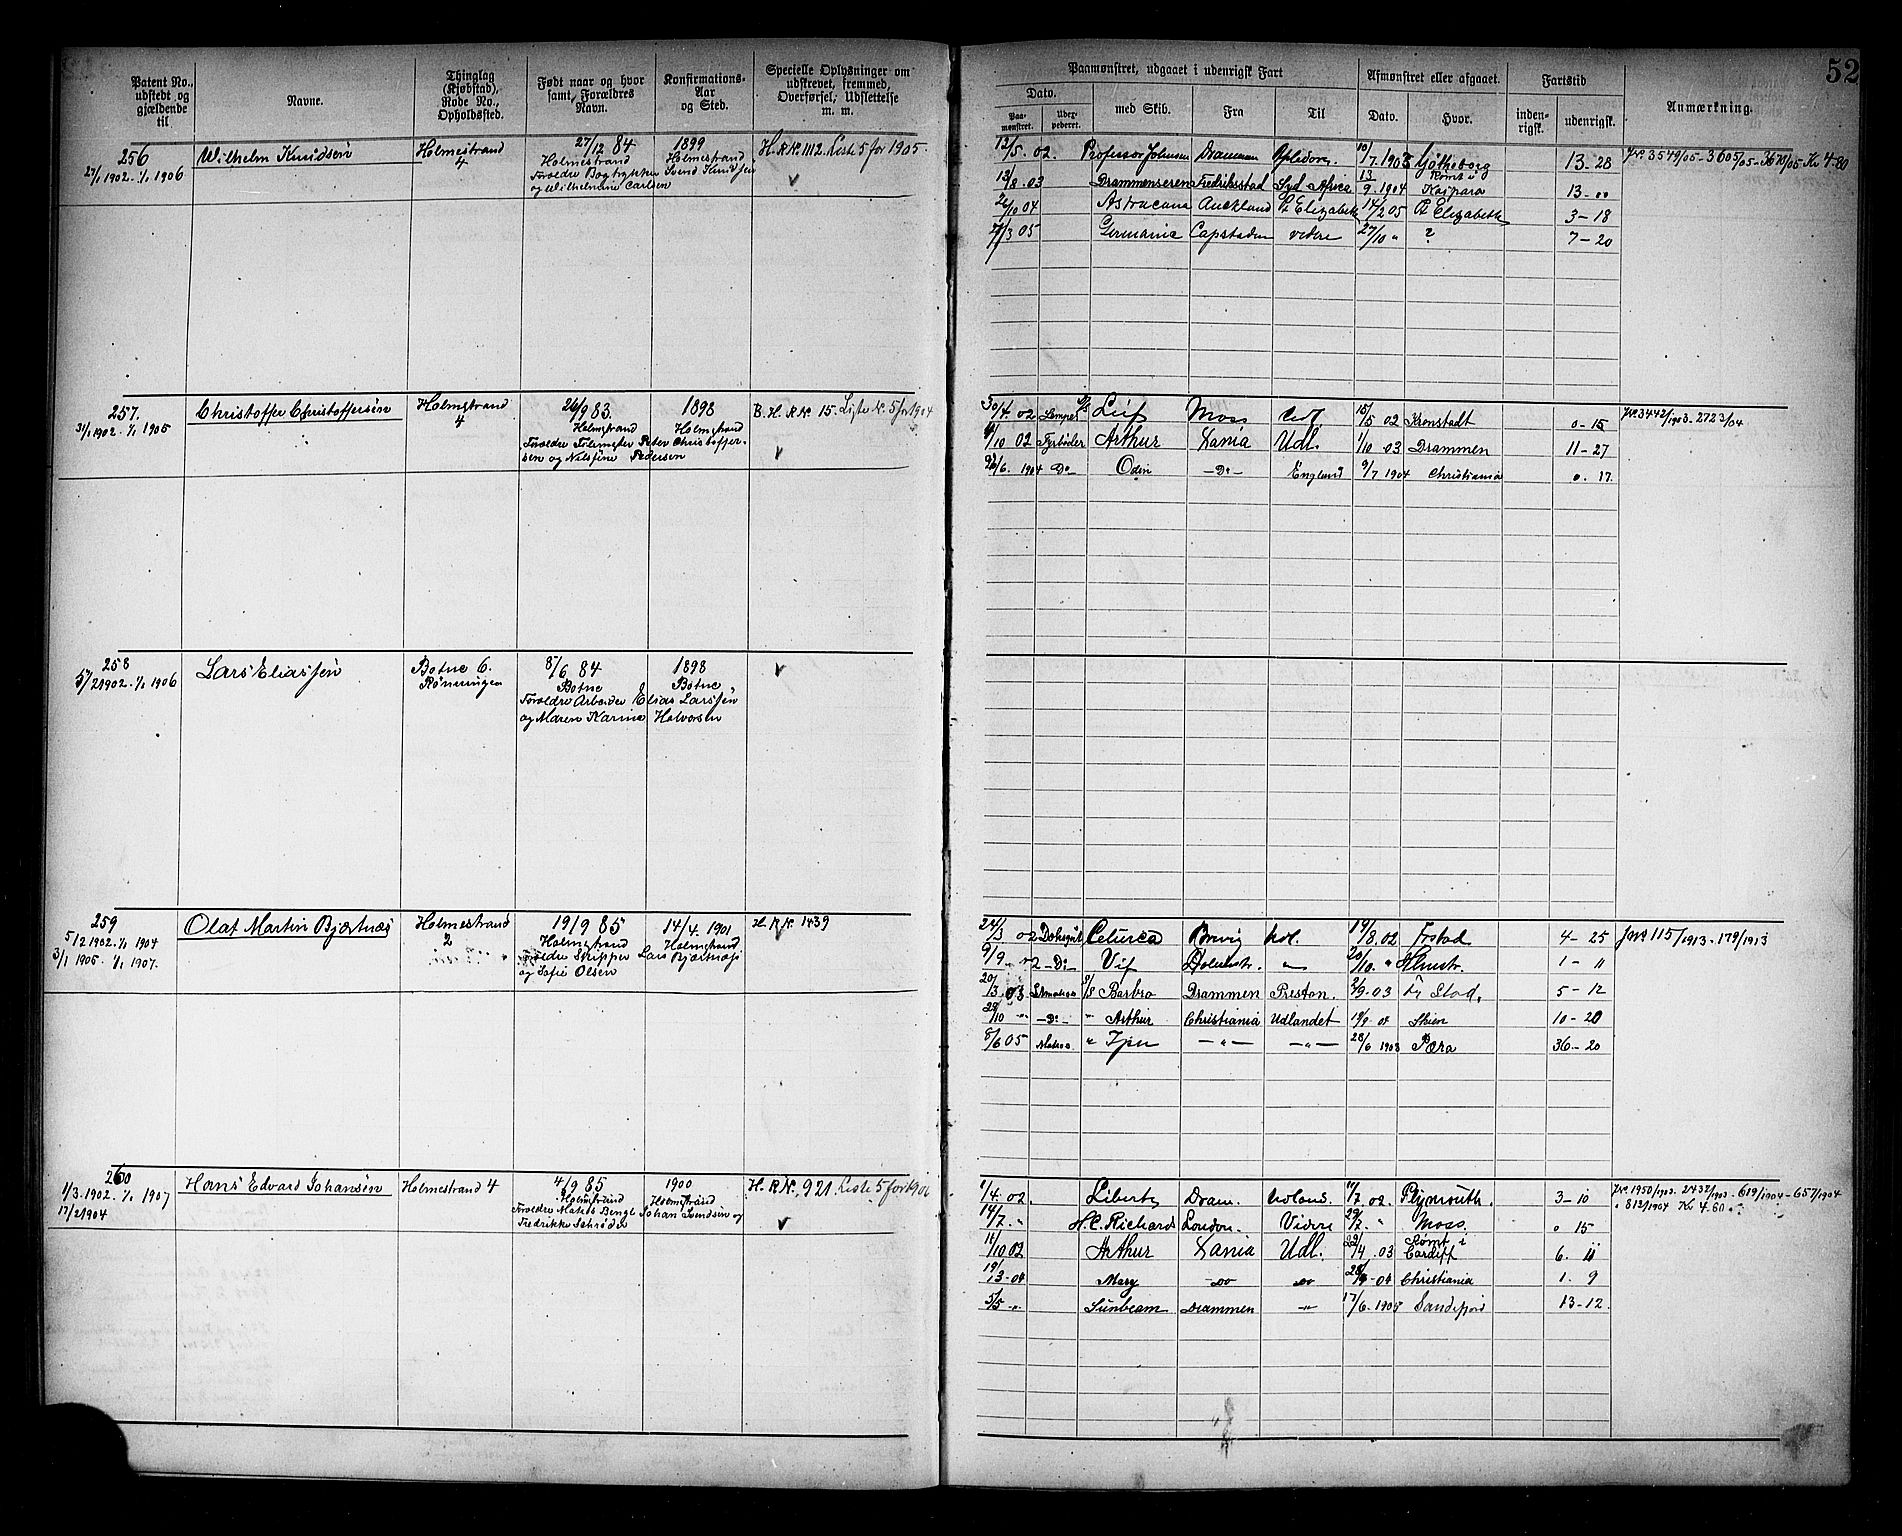 52
Patent No., udstedt og gjældende til
Navne.
Thinglag (Kjøbstad), Rode No., Opholdssted.
Født naar og hvor samt Forældres Navn.
Konfirmations-Aar og Sted.
Specielle Oplysninger om udskrevet, fremmed, Overførsel, Udslettelse m. m.
Paamønstret, udgaaet i udenrigsk Fart
Dato.
Paa-mønstret.
med Skib.
Fra
Til
Afmønstret eller afgaaet.
Dato.
Hvor.
Fartstid
inden-rigsk.
udenrigsk.
Anmærkning.
256
27/1 1902. 1/1 1906
Wilhelm Knudsen
Holmestrand
4
27/12 84
Holmestrand
Forældre Bogtrykker Svend Knudsen
og Wilhelmine Carlsen
1899
Holmestrand
H.R.N. 1112. Liste 5 for 1905.
12/5. 02. Professor Johnsen Drammen 10/7. 1903 Gøtheborg 13-28
13/8. 03 Drammenseren Fredriksstad Syd Africa 13/9. 1904 Rømt i Kaipara 13-00
26/10 04 Astracana Auckland Pt Elizabeth 14/2 05 Pt Elizabeth 3-18
7/3 05 Germania Capstaden videre 27/10 " ? 7-20
J.N. 3549/05 - 3605/05 - 3670/05 Kr 4-80
257.
31/1 1902. 1/1 1905
Christoffer Christoffersen
Holmestrand
4
26/9 83.
Holmstrand
Forældre Peter Christoffersen og Pedersen
1898
Holmstrand
B. H.R.N. 15. Liste N. 5 for 1904
30/4. 02 Lemper D/S Leif Moss Udl 15/5 02 Kronstadt 0-15
9/10 02 Fyrbøder Arthur Xania Udl. 1/10 03 Drammen 11-27
22/6. 1904 Do Odin -Do- England 9/7 1904 Christiania 0. 17.
J.N. 3442/1903. 2723/04
258
5/2 1902. 1/1 1906
Lars Eliassen
Botne 6.
Rønningen
8/6 84
Botne
Forældre Arbeider Elias Larssen
og Maren Karine Halvorsen
1898
Botne
259
5/2 1902. 1/1 1904
3/1 1905. 1/1 1907.
Olaf Martin Bjertnæs
Holmestrand
2
19/9 85
Holmstrand
Forældre Skipper Lars Bjertnæs
og Sofie Olsen
14/4. 1901
Holmstrand
H.R.N. 1439
24/3 02 Brevig Hol. 19/8. 02 Frstad 4-25
9/9 -Do- Vif Holmstr. " 20/10. " Holmstr. 1-11
20/3. 03 D/S Barbro Drammen Preston. 2/9. 03 Fr Stad. 5-12
28/10 " -Do- " Arthur Christiania Udlandet 19/9. 04 Skien 10-20
8/6 05 Matros " -"- -"- 28/6 1908 Pæra 36-20
JNo 115/1913 - 179/1913
260
1/3. 1902. 1/1 1907
17/2 1904
Hans Edvard Johansen
Holmestrand 4
4/9 85
Holmstrand
Forældre Johan Svendsen og
Fredrikke Schrøder
1900
Holmstrand
H.R.N., 921. Liste 5 for 1906
11/4. 02. Liberty Dram. Holand. 11/7. 02. Plymouth. 3-10
14/7. " H.C. Richards London. Videre 29/7. " Moss. 0 15
11/10 02 Arthur Xania Udl. 22/4. 03 Rømt i Cardiff 6. 11
19/3-04 Mary Do Do 28/4-04 Christiania 1. 9
5/5 " Sunbeam Drammen " 17/6. 1905 Sandefjord 13-12.
J.N. 1950/1903. 2432/1903. - 619/1904 - 657/1904
" 812/1904 Kr 4.60